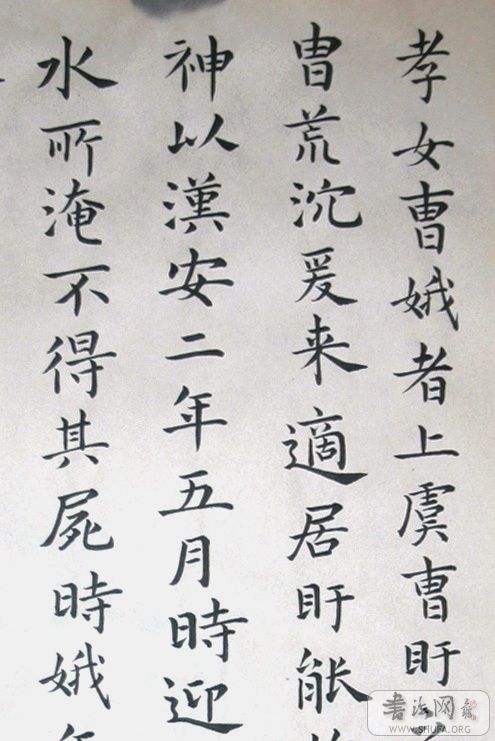 孝女曺娥者上虞曺盱
胄荒沉爰来適居盱能
神以漢安二年五月時迎
水所淹不得其屍時娥年
書法网
WWW.SHUFA.ORG